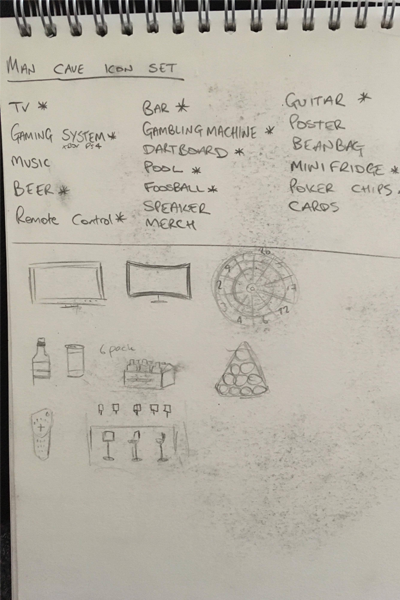 MAN CAVE ICON SET
TV *
GAMING SYSTEM *
XBOX PS4
MUSIC
BEER *
Remote Control *
BAR *
GAMBLING MACHINE *
DARTBOARD *
POOL *
FOOSBALL *
SPEAKER
MERCH
GUITAR *
POSTER
BEANBAG
MINI FRIDGE *
POKER CHIPS *
CARDS
6 pack